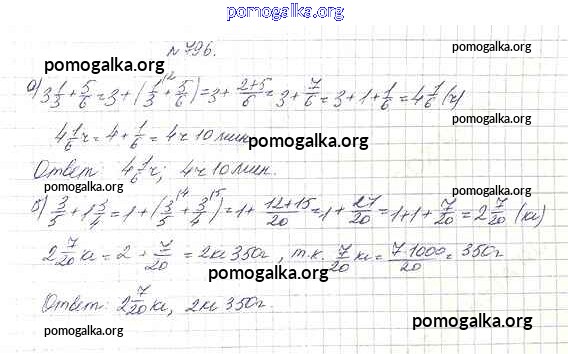 pomogalka.org
№ 796.
pomogalka.org pomogalka.org
а) 3 1/3 + 5/6 = 3 + (1/3 \2 + 5/6) = 3 + (2+5)/6 = 3 + 7/6 = 3 + 1 + 1/6 = 4 1/6 (ч)
4 1/6 ч = 4 + 1/6 = 4ч 10 мин. pomogalka.org pomogalka.org
Ответ: 4 1/6 ч; 4ч 10 мин.
pomogalka.org pomogalka.org
б) 3/5 + 1 3/4 = 1 + (3/5 \4 + 3/4 \5) = 1 + (12+15)/20 = 1 + 27/20 = 1 + 1 + 7/20 = 2 7/20 (кг)
2 7/20 кг = 2 + 7/20 = 2кг 350г, т.к. 7/20 кг = 7·1000/20 = 350г
pomogalka.org pomogalka.org
Ответ: 2 7/20 кг, 2кг 350г.
pomogalka.org pomogalka.org